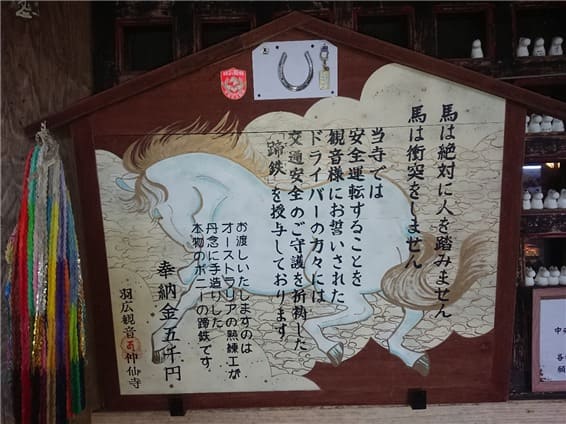 馬は絶対に人を踏みません
馬は衝突をしません
当寺では
安全運転することを
観音様にお誓いされた
ドライバーの方々には
交通安全のご守護を祈執した
“蹄鉄”を授与しております
お渡しいたしますのは
オーストラリアの熟練工が
丹念に手造りした
本物のポニーの蹄鉄です。
奉納金五千円
羽広観音 仲仙寺